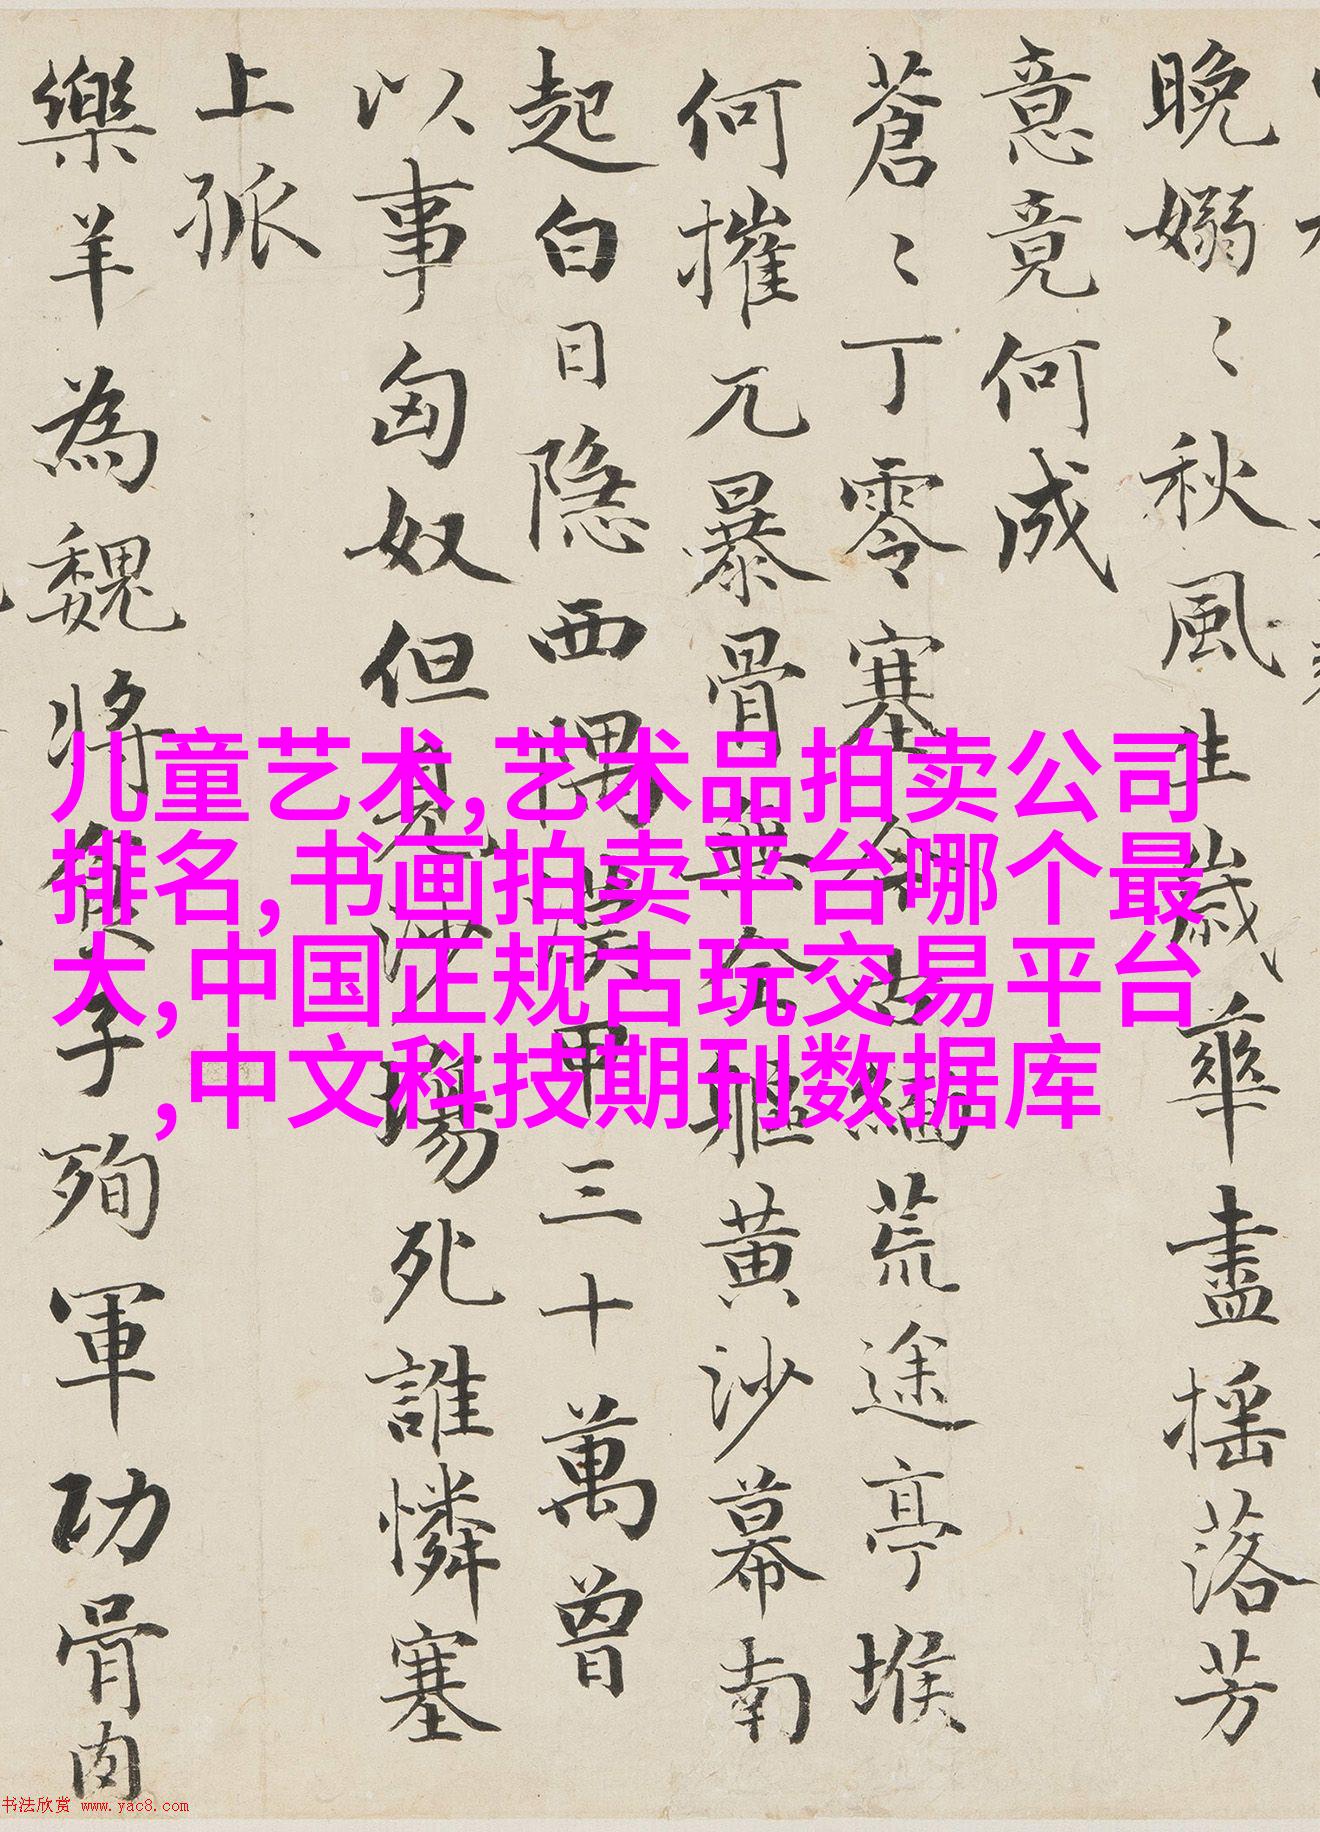 晚嫋〻秋風生歲華盡揺落芳
意竟何成
蒼〻丁零塞今古緬荒途亭堠
何摧兀暴骨無全軀黄沙幕南
起白日隐西隅漢甲三十萬曾
以事匈奴但見沙場死誰憐塞
上孤
樂羊為魏将食子殉軍功骨肉
儿童艺术,艺术品拍卖公司
排名,书画拍卖平台哪个最
大,中国正规古玩交易平台
,中文科技期刊数据库
书法欣赏 www.yac8.com